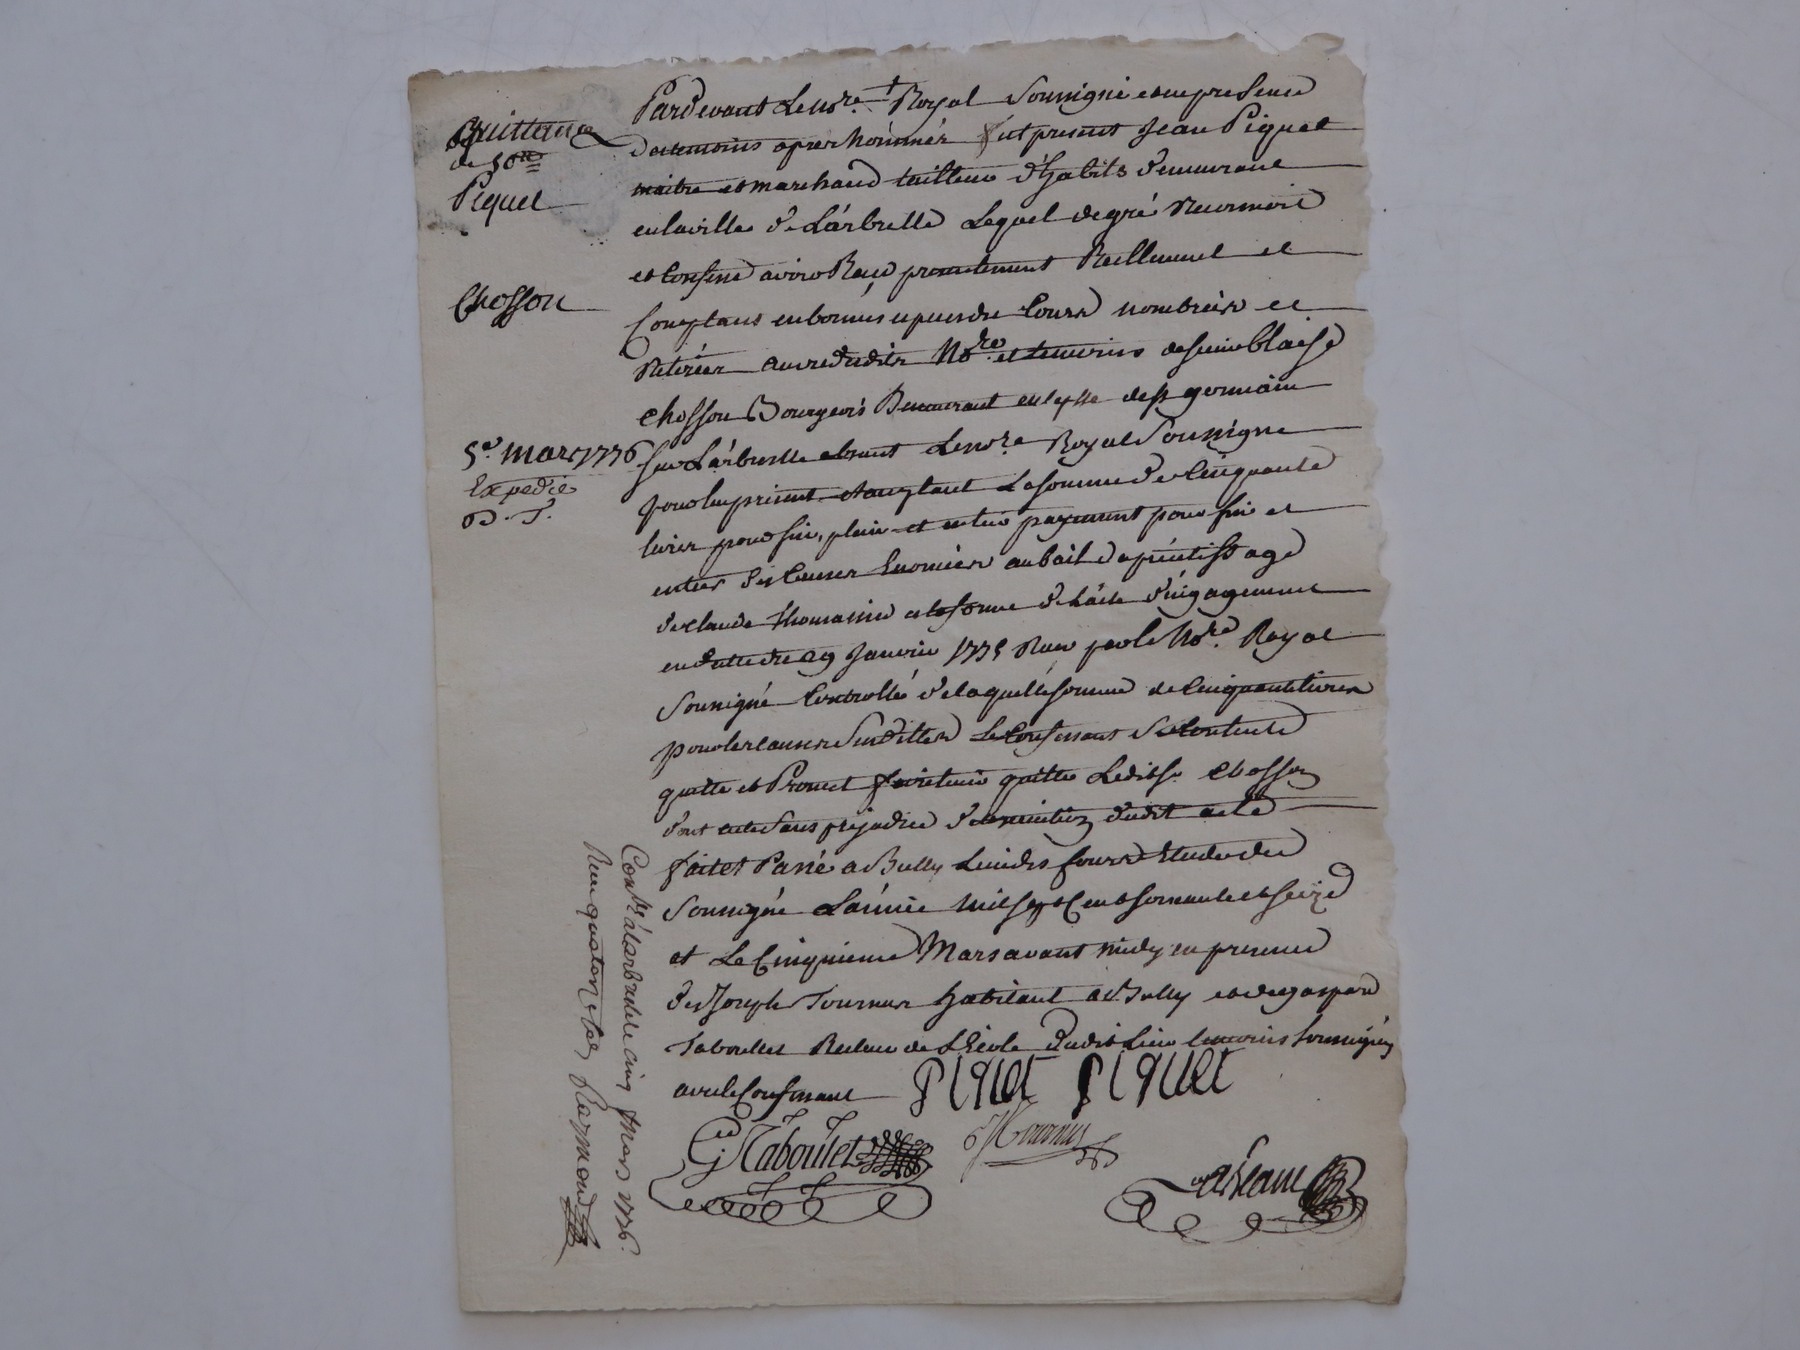 quittance
de 50 ₶
Piquet
Chosson
5e. mars 1776
Expedié
Pardevant Le no.re Royal Soussigné et en presence
des temoins apres nommés fut present Jean Piquet
maitre et marchand tailleur d'habits demeurant
en la ville de L'arbrelle Lequel de gré Reconnoit
et Confesse avoir Reçu presentement Reellement et
Comptant en bonnes especes du Cours nombrées et
Retirées au vu dudit No.re et temoins de sieur blaise
chosson Bourgeois Demeurant en la psse de st germain
sur L'arbrelle absent Le no.re Royal Soussigné
pour lui present et acceptant La somme de Cinquante
livres pour fin, plein et entier payement pour fin et
entier des Causes Enoncées au bail d'aprentissage
de claude Thomassin et la forme de l'acte d'engagement
en datte du 29 Janvier 1775 Reçu par le No.re Royal
Soussigné Controllé de laquelle somme de Cinquante livres
pour les causes Susdittes Le Confessant Se Contente
quitte et Promet faire tenir quitte Ledit sr. Chosson
dont acte Sans prejudice de dudit acte
fait et Passé a Bully Etude du
Soussigné L'année mil sept Cent soixante et seize
et Le Cinquieme Mars avant midy en presence
de Joseph Tournus habitant a Bully et de gaspard
Taboullet Recteur de L'Ecole dudit Lieu temoins Soussignés
avec le Confessant Piquet Piquet
G. Taboulet Tournus
Con.lé a Larbrele le cinq mars 1776.
Reçu quatorze sols Raymond